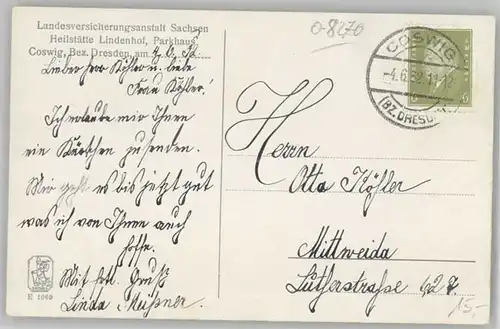 Landesversicherungsanstalt Sachsen
Heilstätte Lindenhof, Parkhaus
Coswig, Bez. Dresden, am 4. 6. 32
Lieber Herr Köhler u. liebe
Frau Köhler!
Ich erlaube mir Ihnen
ein Kärtchen zu senden.
Mir geht es bis jetzt gut
was ich von Ihnen auch
hoffe.
Mit frdl. Gruß
Linda Meißner.
E 1060
0-8270
COSWIG
-4.6.32.11-12
(BZ. DRESDEN)
6 6
Herrn
Otto Köhler
Mittweida
Lutherstraße 62
15,-